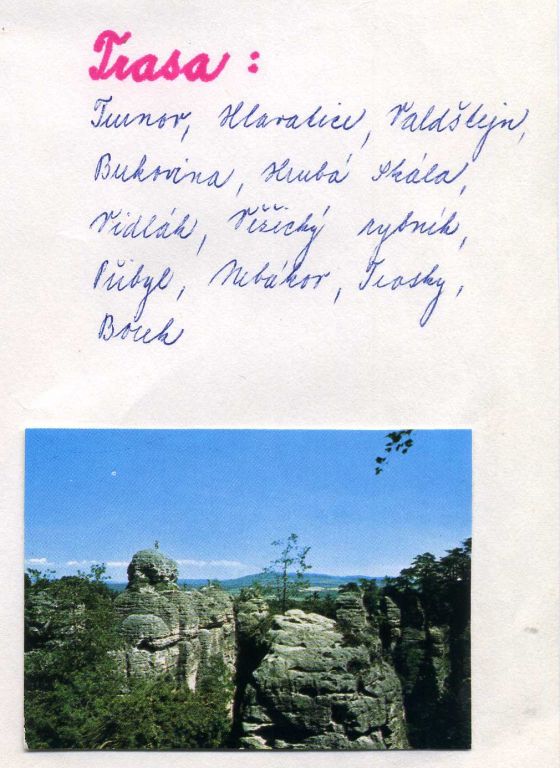 Trasa :
Turnov, Hlavatice, Valdštejn,
Bukovina, Hrubá Skála,
Vidlák, Věžický rybník,
Přibyl, Nebákov, Trosky,
Borek